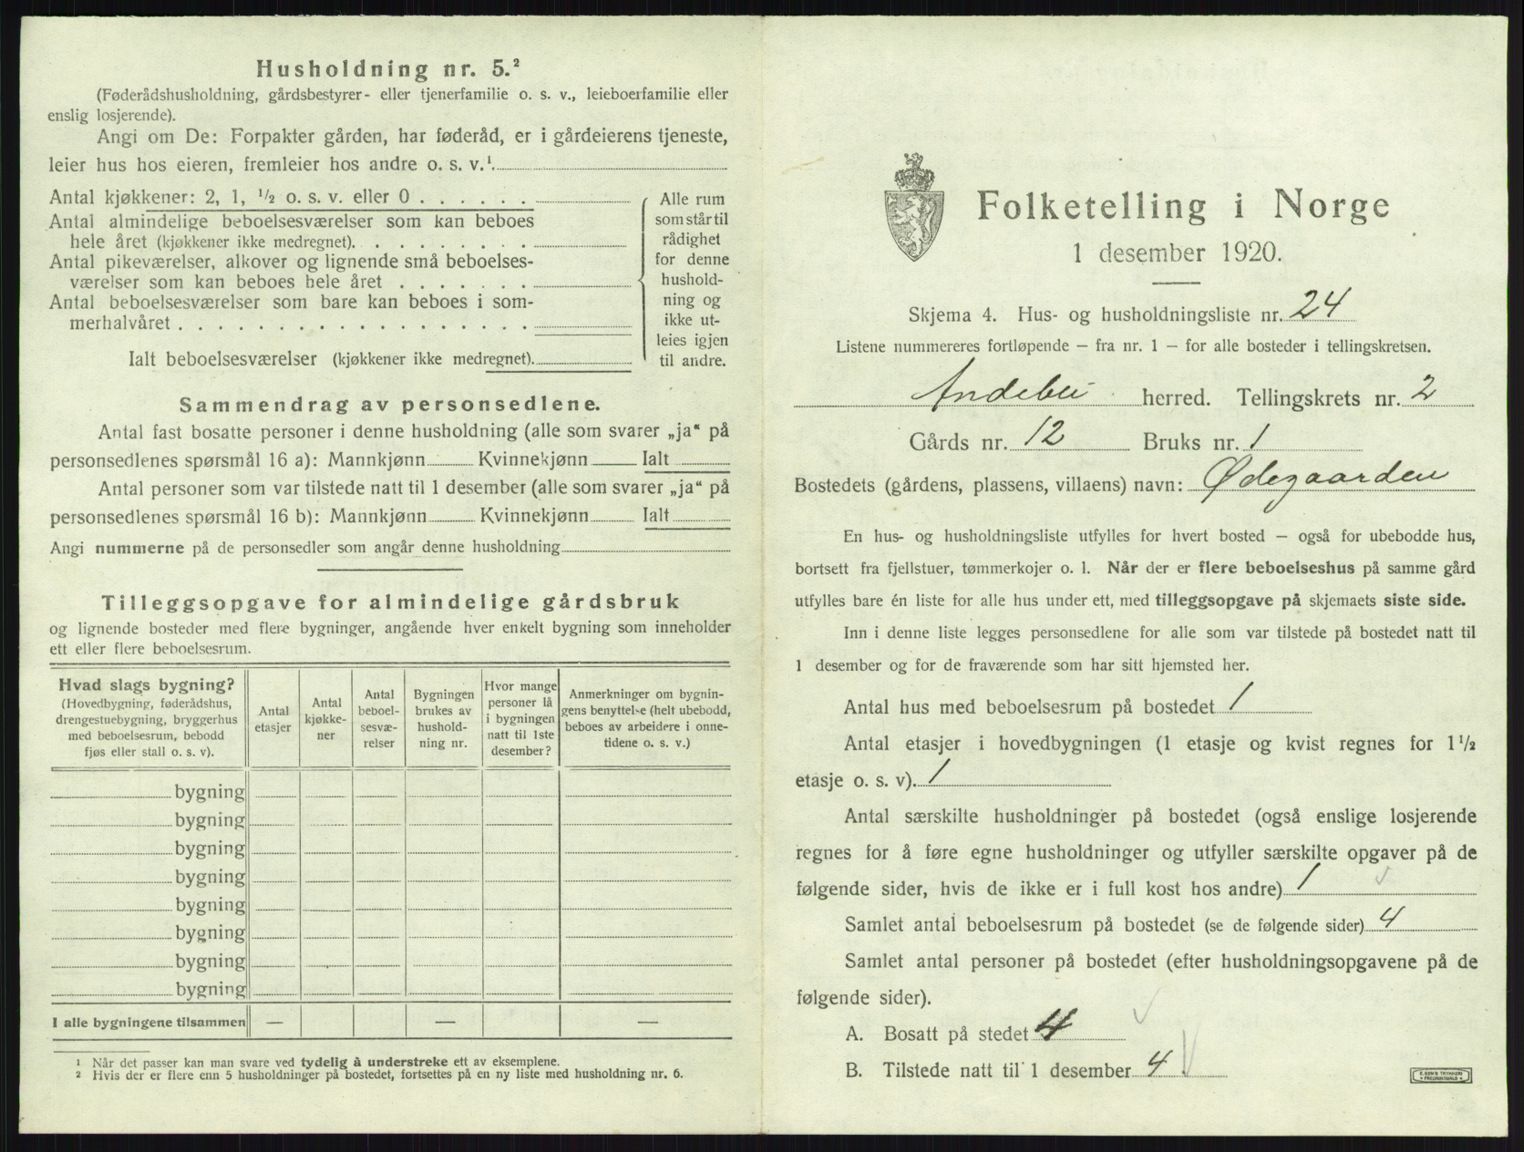 Husholdning nr. 5.²
(Føderådshusholdning, gårdsbestyrer- eller tjenerfamilie o. s. v., leieboerfamilie eller
enslig losjerende).
Angi om De: Forpakter gården, har føderåd, er i gårdeierens tjeneste,
leier hus hos eieren, fremleier hos andre o. s. v.¹
Antal kjøkkener: 2, 1, ½ o. s. v. eller 0 . . . . . .
Antal almindelige beboelsesværelser som kan beboes
hele året (kjøkkener ikke medregnet). . . . . . . . .
Antal pikeværelser, alkover og lignende små beboelses-
værelser som kan beboes hele året . . . . . . .
Antal beboelsesværelser som bare kan beboes i som-
merhalvåret . . . . . . . . . . . . . . . . . .
Ialt beboelsesværelser (kjøkkener ikke medregnet).
Alle rum
som står til
rådighet
for denne
hushold-
ning og
ikke ut-
leies igjen
til andre.
Sammendrag av personsedlene.
Antal fast bosatte personer i denne husholdning (alle som svarer „ja“ på
personsedlenes spørsmål 16 a): Mannkjønn Kvinnekjønn Ialt
Antal personer som var tilstede natt til 1 desember (alle som svarer „ja“ på
personsedlenes spørsmål 16 b): Mannkjønn Kvinnekjønn Ialt
Angi nummerne på de personsedler som angår denne husholdning
Tilleggsopgave for almindelige gårdsbruk
og lignende bosteder med flere bygninger, angående hver enkelt bygning som inneholder
ett eller flere beboelsesrum.
Hvad slags bygning?
(Hovedbygning, føderådshus,
drengestuebygning, bryggerhus
med beboelsesrum, bebodd
fjøs eller stall o. s. v).
Antal
etasjer
Antal
kjøkke-
ner
Antal
beboel-
sesvæ-
relser
Bygningen
brukes av
hushold-
ning nr.
Hvor mange
personer lå
i bygningen
natt til 1ste
desember?
Anmerkninger om bygnin-
gens benyttelse (helt ubebodd,
beboes av arbeidere i onne-
tidene o. s. v.)
bygning
bygning
bygning
bygning
bygning
bygning
bygning
bygning
I alle bygningene tilsammen — — —
¹ Når det passer kan man svare ved tydelig å understreke ett av eksemplene.
² Hvis der er flere enn 5 husholdninger på bostedet, fortsettes på en ny liste med husholdning nr. 6.
Folketelling i Norge
1 desember 1920.
Skjema 4. Hus- og husholdningsliste nr. 24
Listene nummereres fortløpende — fra nr. 1 — for alle bosteder i tellingskretsen.
Andebu herred. Tellingskrets nr. 2
Gårds nr. 12 Bruks nr. 1
Bostedets (gårdens, plassens, villaens) navn: Ødegaarden
En hus- og husholdningsliste utfylles for hvert bosted — også for ubebodde hus,
bortsett fra fjellstuer, tømmerkojer o. l. Når der er flere beboelseshus på samme gård
utfylles bare én liste for alle hus under ett, med tilleggsopgave på skjemaets siste side.
Inn i denne liste legges personsedlene for alle som var tilstede på bostedet natt til
1 desember og for de fraværende som har sitt hjemsted her.
Antal hus med beboelsesrum på bostedet 1
Antal etasjer i hovedbygningen (1 etasje og kvist regnes for 1½
etasje o. s. v). 1
Antal særskilte husholdninger på bostedet (også enslige losjerende
regnes for å føre egne husholdninger og utfyller særskilte opgaver på de
følgende sider, hvis de ikke er i full kost hos andre) 1
Samlet antal beboelsesrum på bostedet (se de følgende sider) 4
Samlet antal personer på bostedet (efter husholdningsopgavene på de
følgende sider).
A. Bosatt på stedet 4
B. Tilstede natt til 1 desember 4